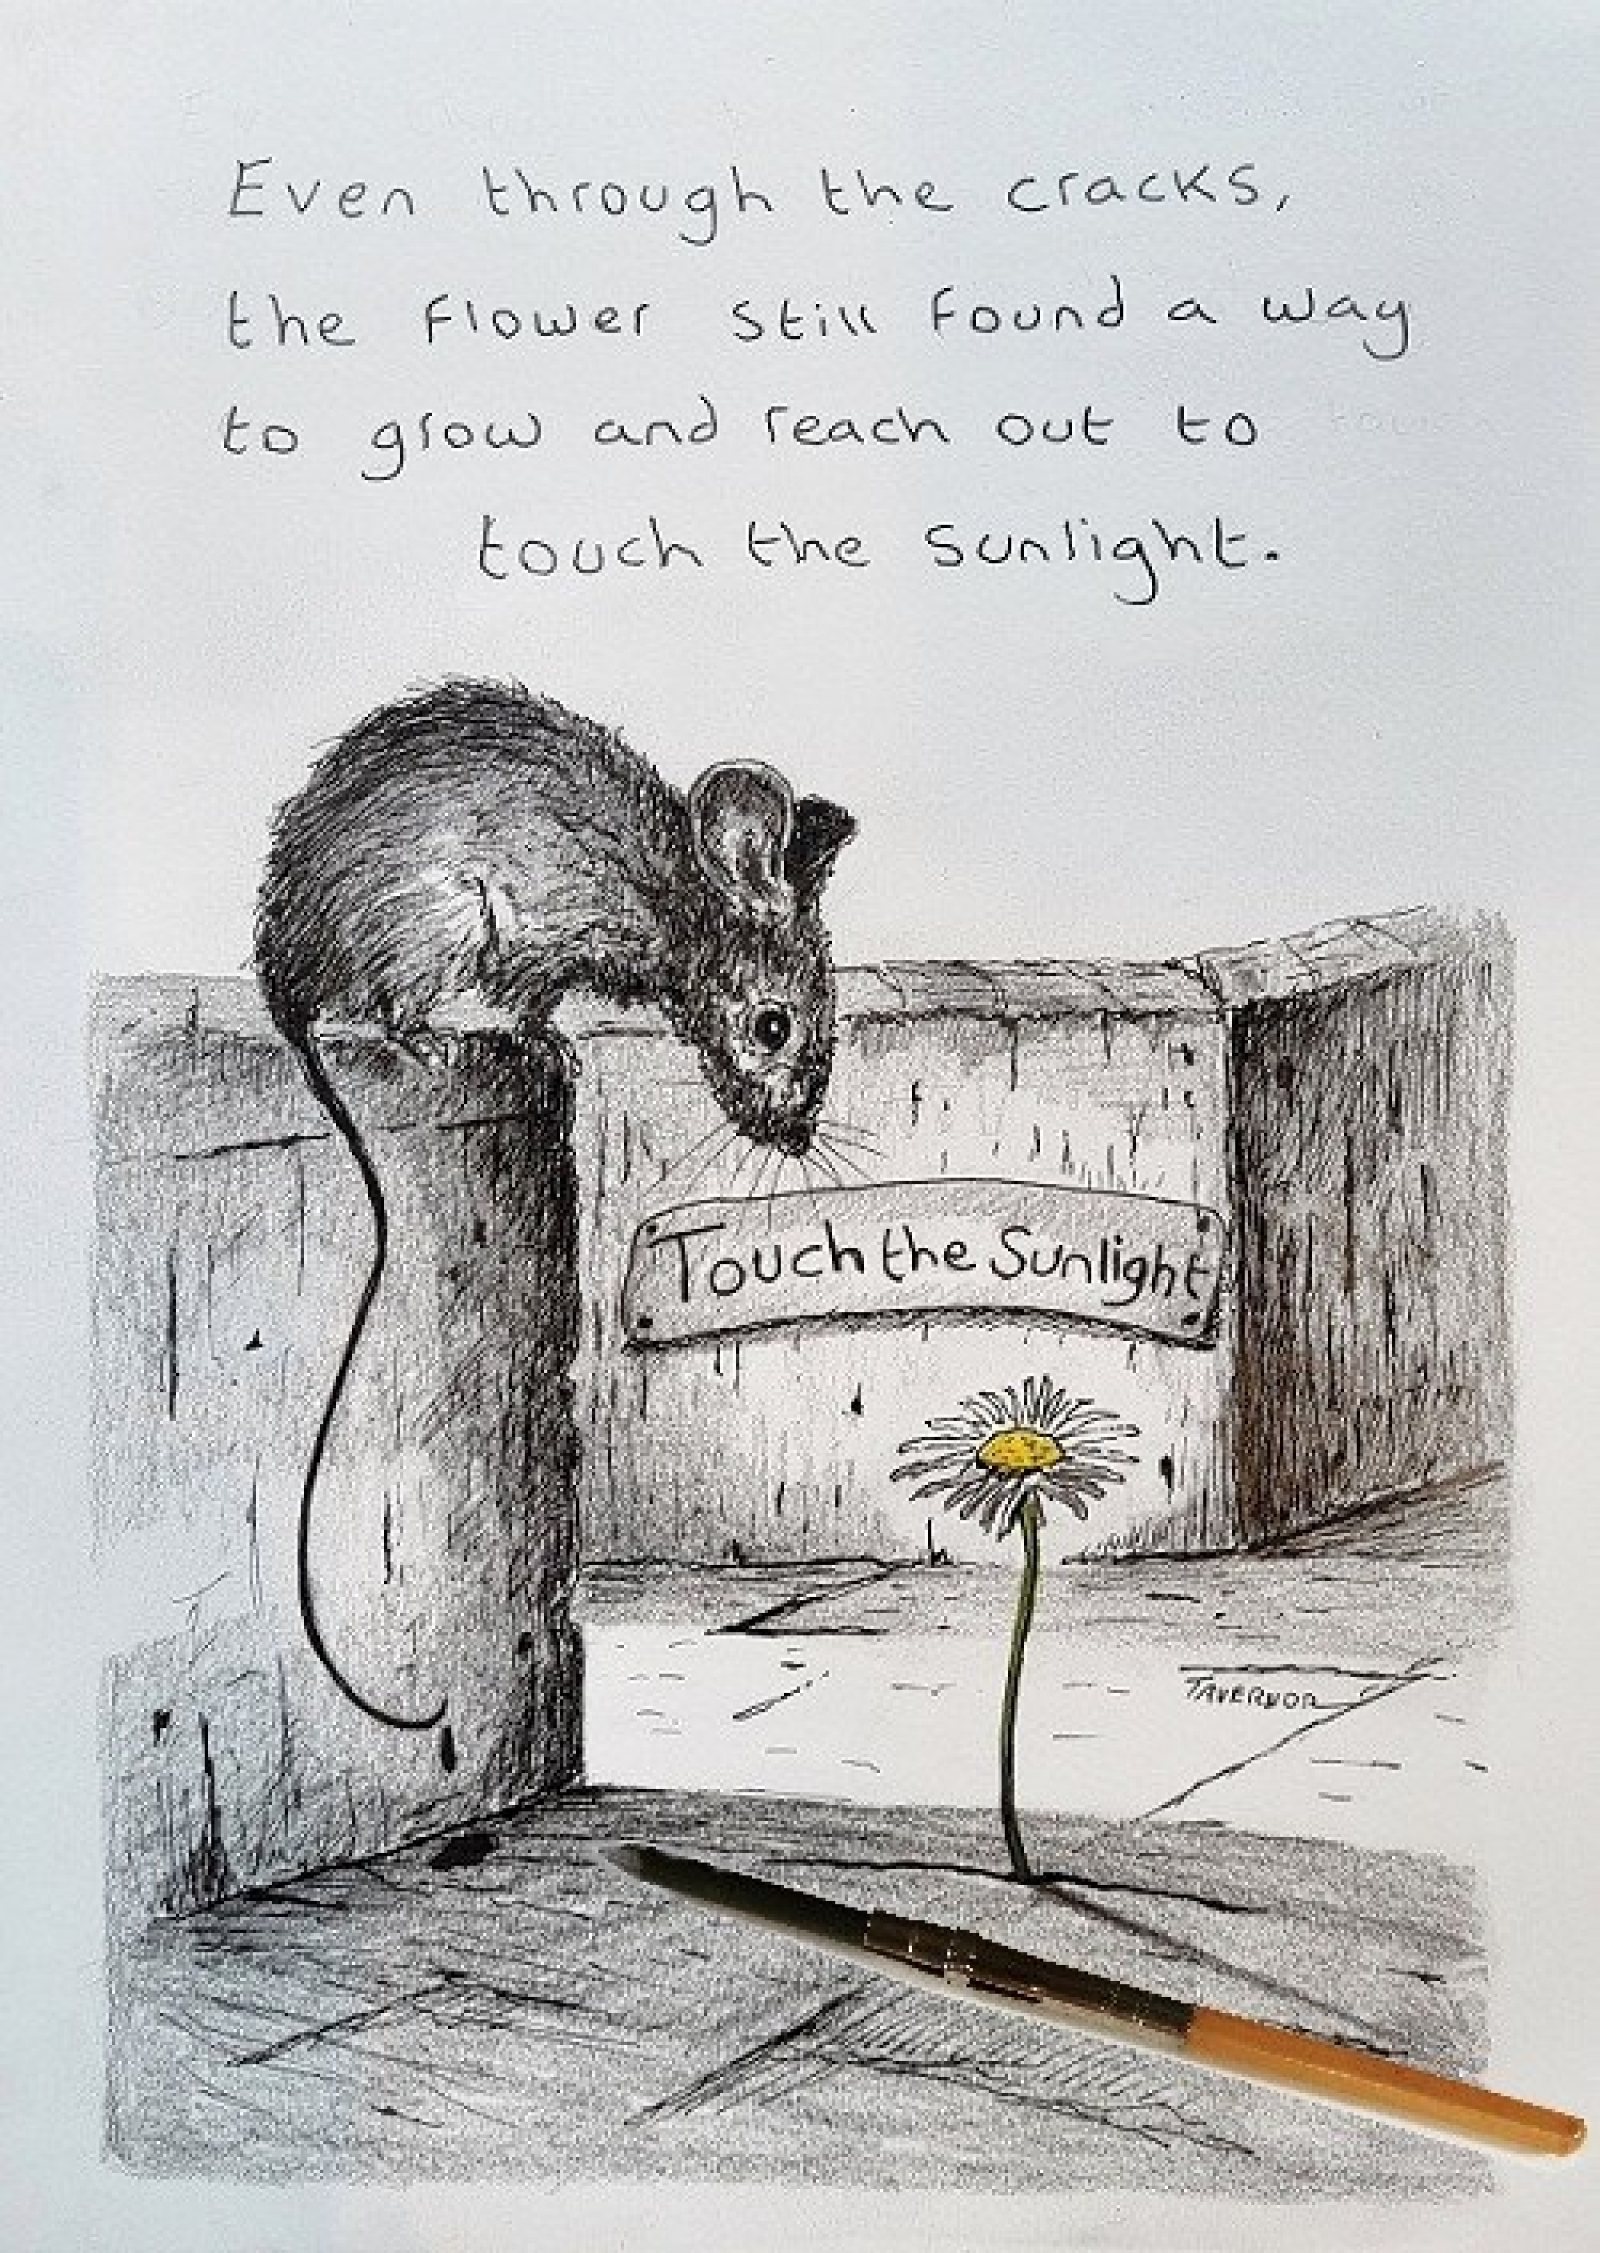 Even through the cracks,
the flower still found a way
to grow and reach out to
touch the sunlight.
Touch the Sunlight
TAVERNOR